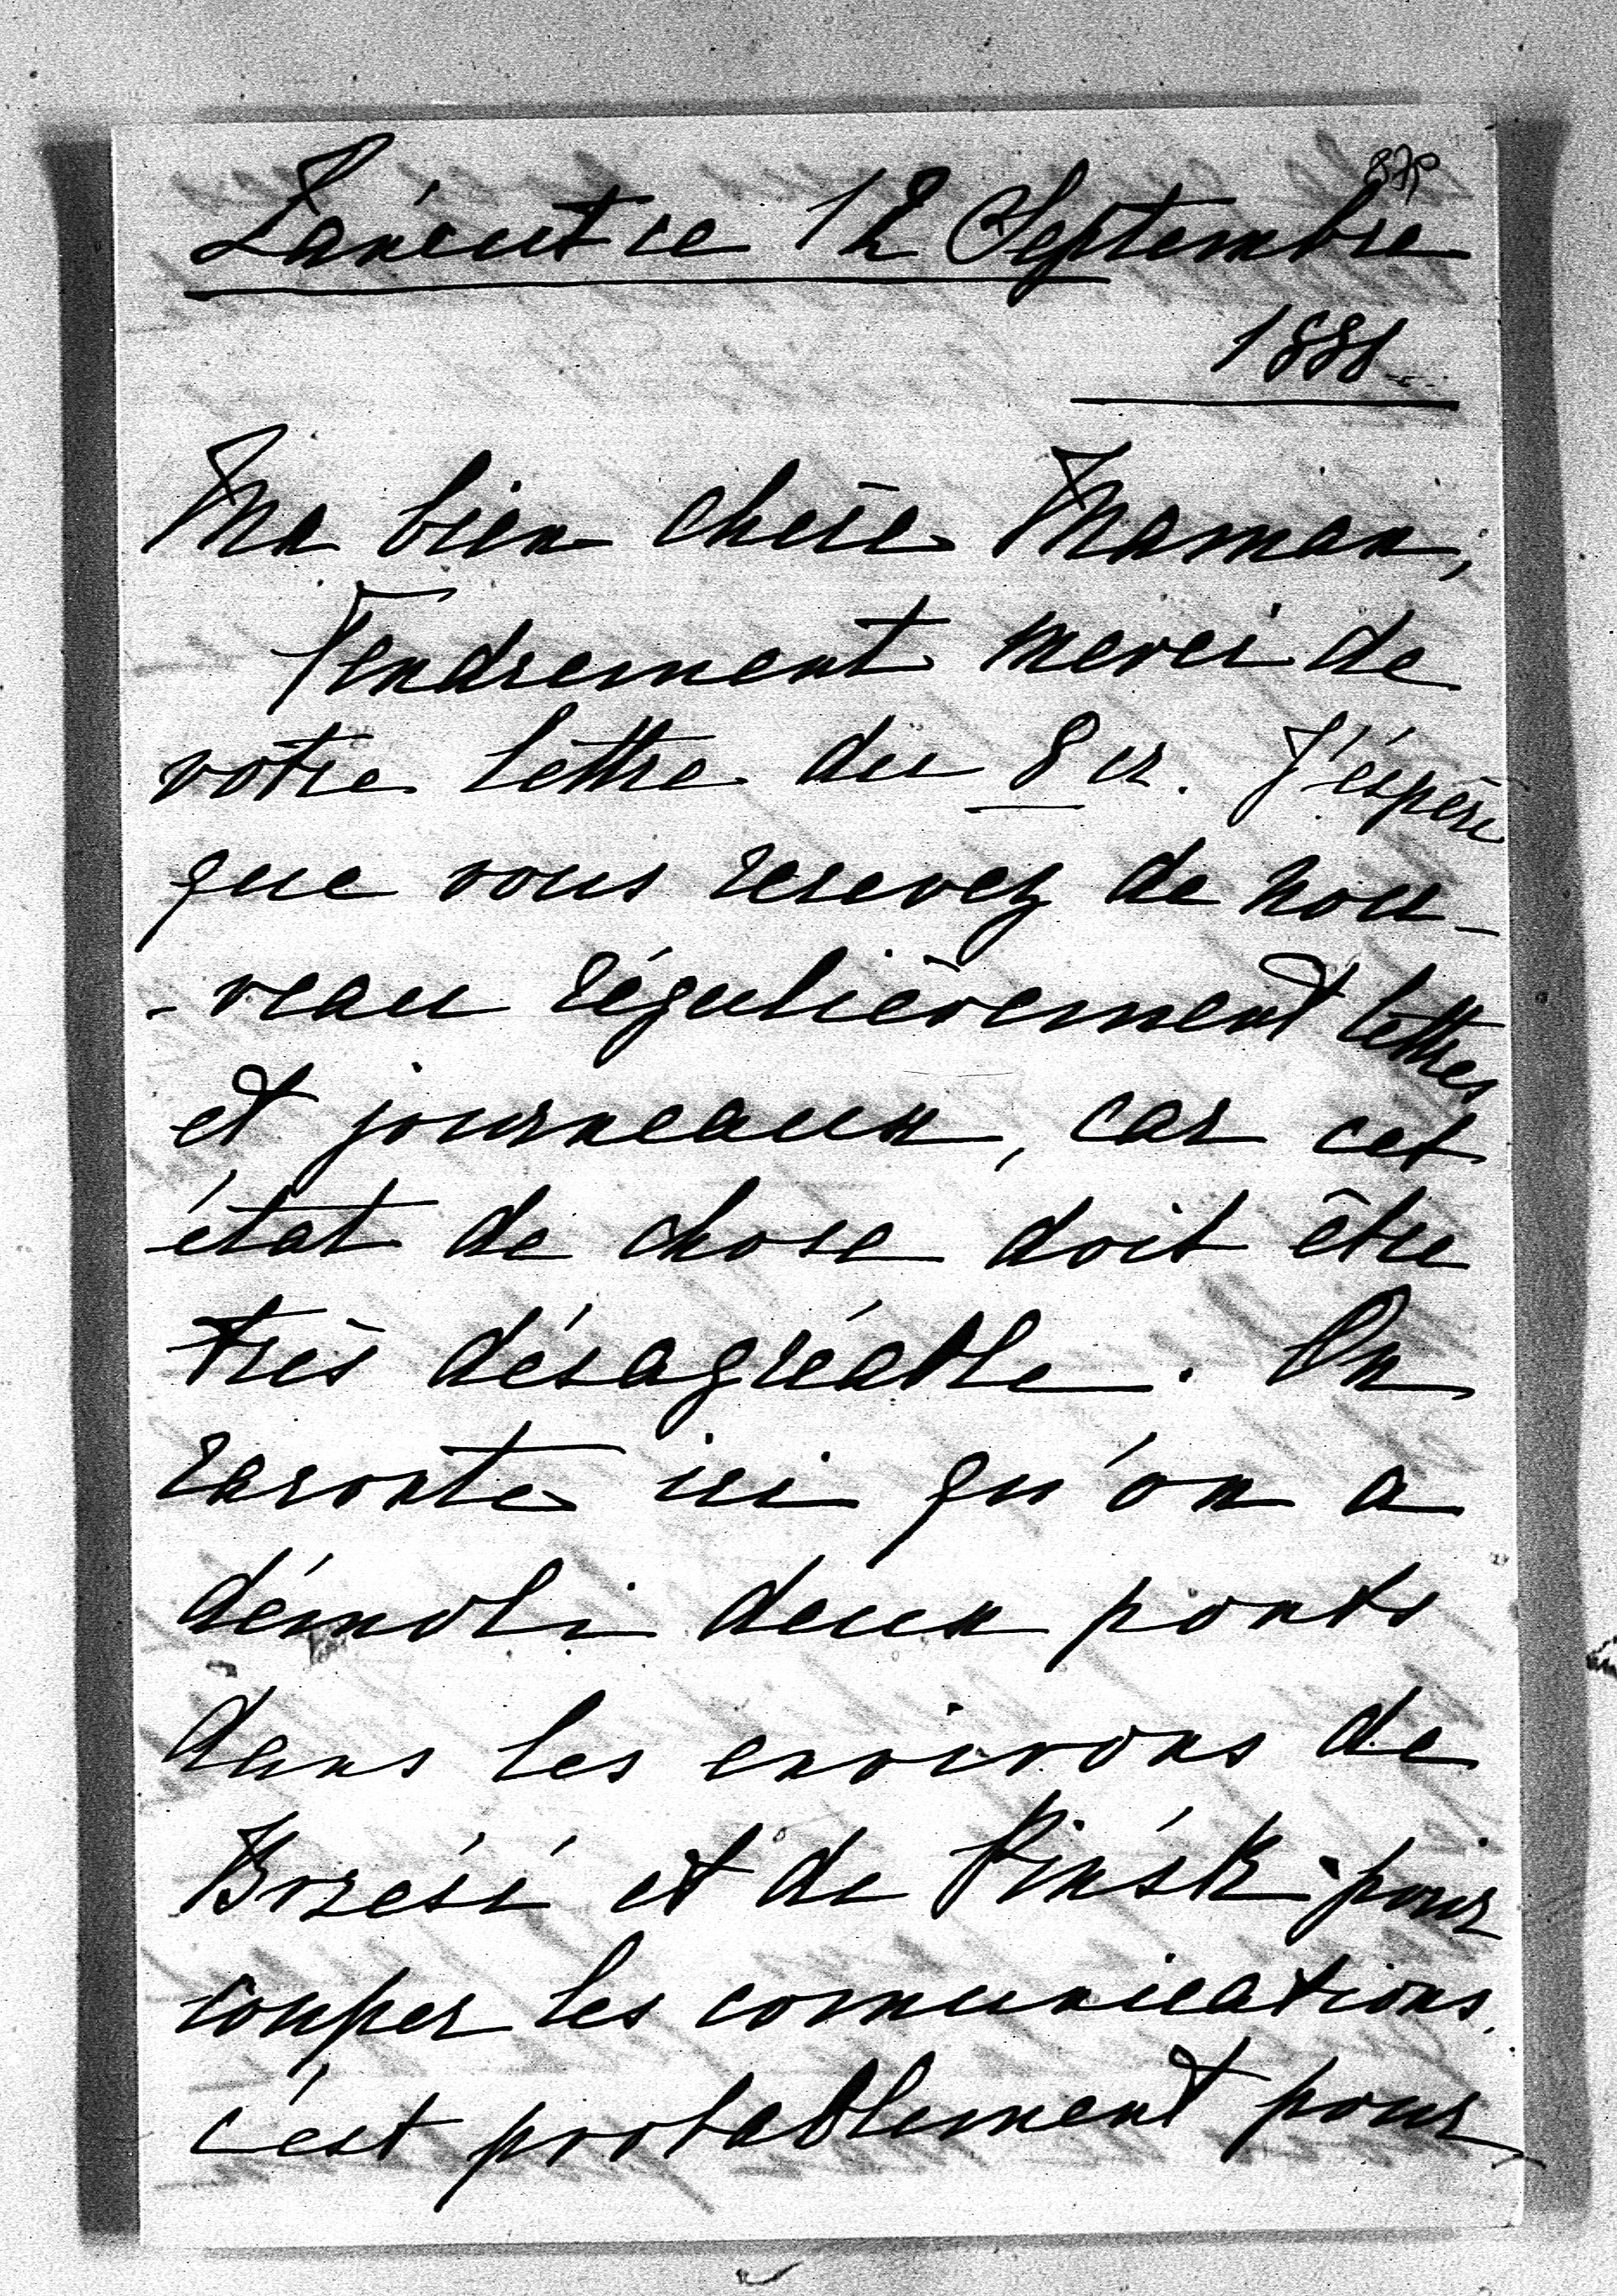 Łańcut ce 12 Septembre
1888
Ma bien chère Maman,
Tendrement merci de
votre lettre du 8 cr. J'éspère
que vous recevez de nou-
-veau régulièrement lettres
et journeaux, car cet
état de chose doit être
très désagréable. On
raconte ici qu'on a
démoli deux ponts
dans les environs de
Brześć et de Pińsk pour
couper les comunications.
c'est probablement pour